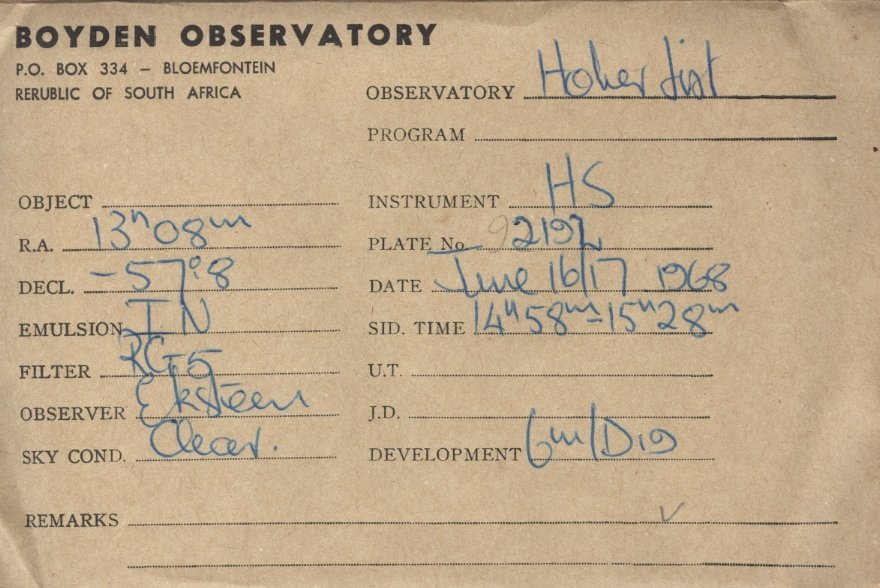 BOYDEN OBSERVATORY
P.O. BOX 334 – BLOEMFONTEIN
RERUBLIC OF SOUTH AFRICA
OBSERVATORY Hoher List
PROGRAM
OBJECT
INSTRUMENT HS
R.A. 13h 08m
PLATE No. 92192
DECL. -57°8
DATE June 16/17 1968
EMULSION I N
SID. TIME 14h 58m - 15h 28m
FILTER RG5
U.T.
OBSERVER Eksteen
J.D.
SKY COND. Clear.
DEVELOPMENT 6m/D19
REMARKS